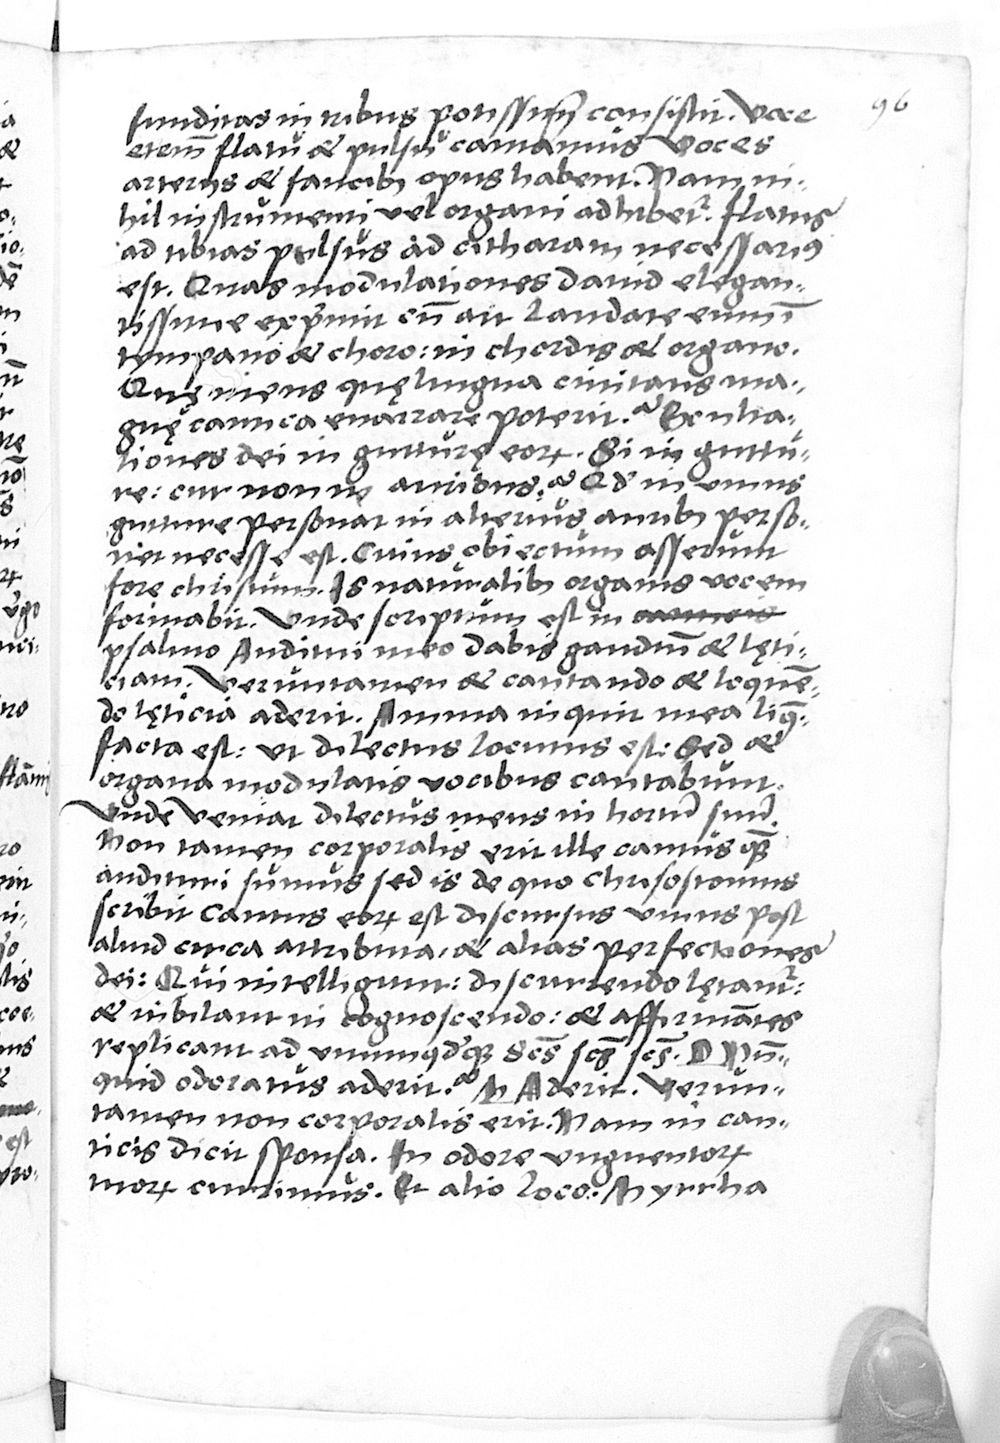 96
funditas in tribus potissimū consistit. Voce
etenī flatū & pulsū cantamus Voces
arterijs & faucibꝫ opus habent. Nam ni-
hil instrumenti vel organi adhibet᷑. flatus
ad tibias pulsus ad citharam necessariꝰ
est. Quas modulationes dauid elegan-
tissime exp̄mit cū ait Laudate eum ī
tympano & choro: in chordis & organo.
Quę mens quę lingua ciuitatis ma-
gnę cantica enarrare poterit? Exulta-
tiones dei in gutturę eoꝝ. Si in guttu-
re: cur non in auribus? Qd̓ in vnius
gutture personat in alterius auribꝫ perso-
net necesse est. Cuius obiectum asserunt
fore christum. Is naturalibꝫ organis vocem
formabit. Vnde scriptum est in
psalmo Auditui meo dabis gaudiū & lęti-
ciam. Veruntamen & cantando & loquē-
do lęticia aderit. Anima inquit mea liq̄-
facta est: vt dilectus locutus est: Sed &
organa modulatis vocibus cantabunt.
Vnde Veniat dilectus meus in hortū suū.
Non tamen corporalis erit ille cantus quē
audituri sumus sed is de quo Chrisostomus
scribit Cantus eoꝝ est discursus vnius post
aliud circa attributa, & alias perfectiones
dei: Qui intelligunt: discurrendo lętant᷑:
& iubilant in cognoscendo: & affirmātes
replicant ad vnumqd̓qꝫ Scs̄ scs̄ scs̄. D Nū-
quid odoratus aderit? M Aderit. Verun-
tamen non corporalis erit. Nam in can-
ticis dicit sponsa. In odore vnguentoꝝ
tuoꝝ currimus. Et alio loco: Myrrha